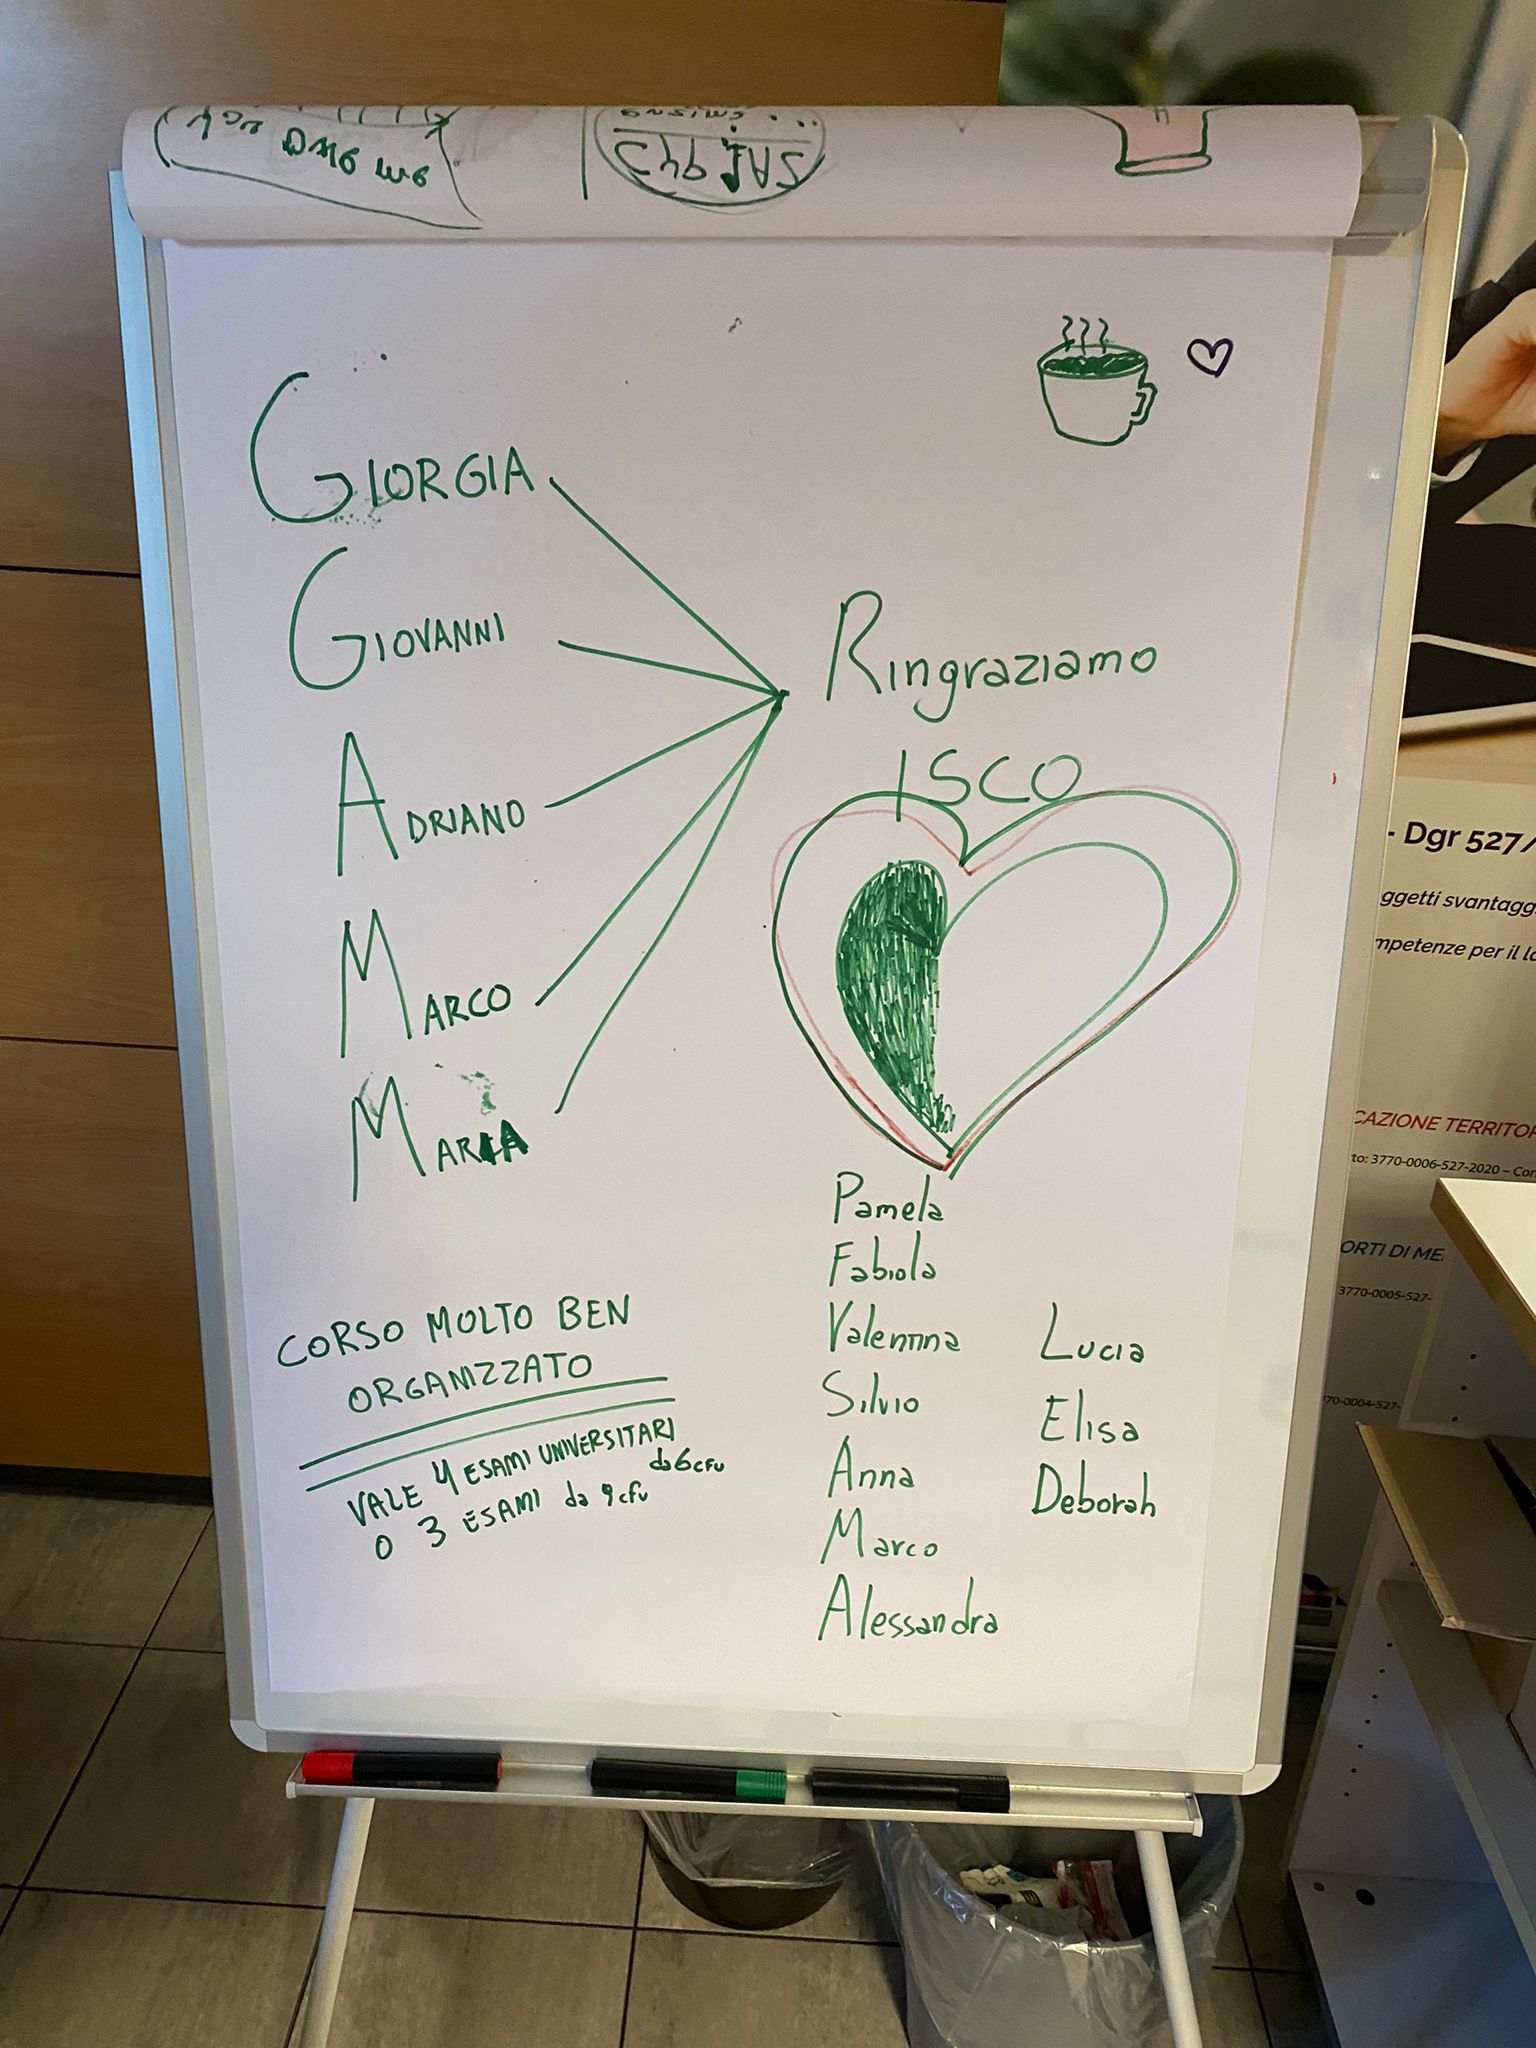 GIORGIA
GIOVANNI
ADRIANO
MARCO
MARIA
Ringraziamo
ISCO
Pamela
Fabiola
Valentina
Silvio
Anna
Marco
Alessandra
Lucia
Elisa
Deborah
CORSO MOLTO BEN
ORGANIZZATO
VALE 4 ESAMI UNIVERSITARI
da 6 cfu
O 3 ESAMI da 9 cfu
- Dgr 527/
ggetti svantagg
mpetenze per il lo
CAZIONE TERRITOR
to: 3770-0006-527-2020 – Con
ORTI DI ME
3770-0005-527-
70-0004-527-